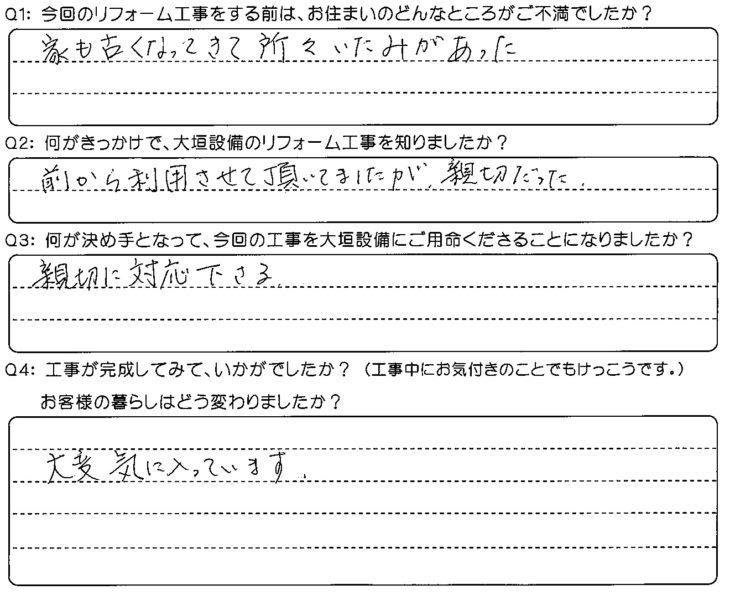 Q1: 今回のリフォーム工事をする前は、お住まいのどんなところがご不満でしたか？
家も古くなってきて所々いたみがあった
Q2: 何がきっかけで、大垣設備のリフォーム工事を知りましたか？
前から利用させて頂いてましたが、親切だった。
Q3: 何が決め手となって、今回の工事を大垣設備にご用命くださることになりましたか？
親切に対応下さる。
Q4: 工事が完成してみて、いかがでしたか？（工事中にお気付きのことでもけっこうです。）
お客様の暮らしはどう変わりましたか？
大変気に入っています。